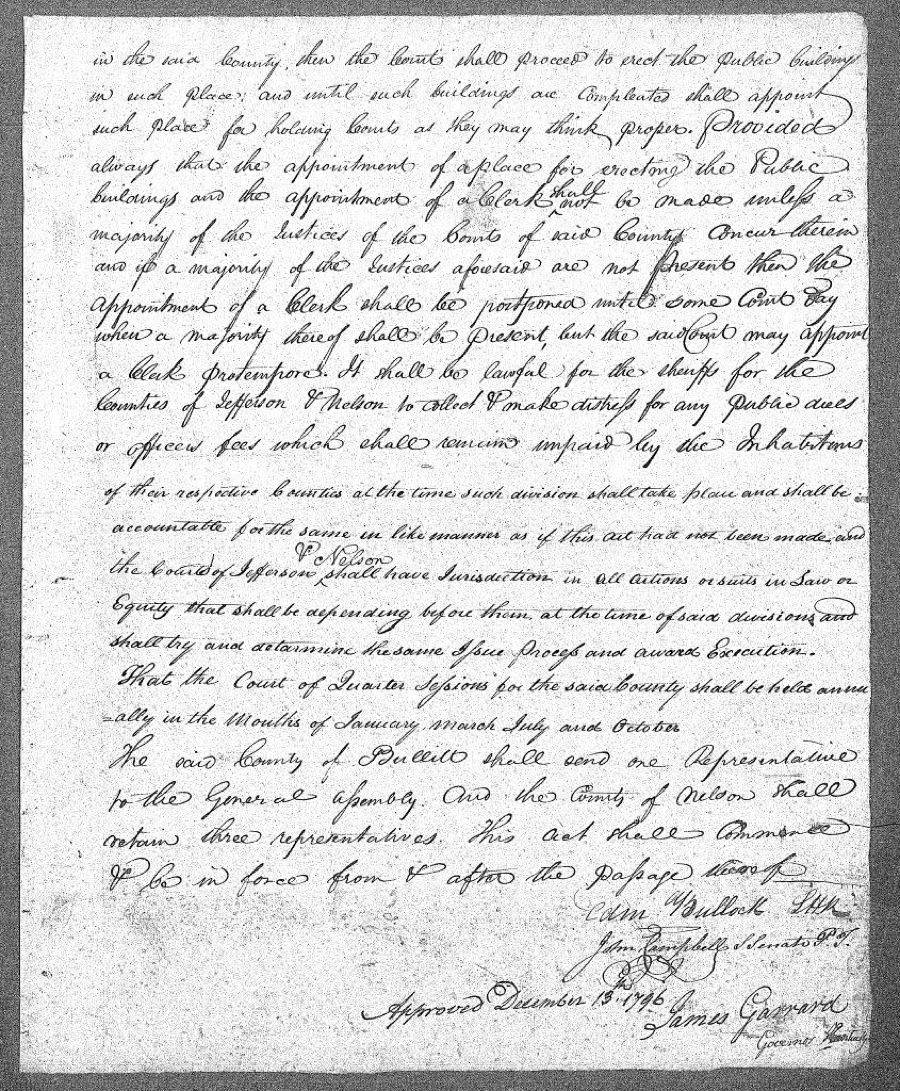 in the said County, then the Court shall proceed to erect the public buildings
in such place; and until such buildings are Compleated shall appoint
such place for holding Courts as they may think proper. Provided
always that the appointment of a place for erecting the Public
buildings and the appointment of a Clerk shall not be made unless a
majority of the Justices of the Courts of said County Concur therein
and if a majority of the Justices aforesaid are not present then the
Appointment of a Clerk shall be postponed until some Court Day
when a majority thereof shall be present, but the said Court may appoint
a Clerk protempore. It shall be lawful for the sheriffs for the
Counties of Jefferson & Nelson to collect & make distress for any public dues
or officers fees which shall remain unpaid by the Inhabitants
of their respective Counties at the time such division shall take place and shall be
accountable for the same in like manner as if this act had not been made and
the Courts of Jefferson & Nelson shall have Jurisdiction in all actions or suits in Law or
Equity that shall be depending before them at the time of said divisions and
shall try and determine the same Issue Process and award Execution.
That the Court of Quarter Sessions for the said County shall be held annu
=ally in the Months of January, March July and October
The said County of Bullitt shall send one Representative
to the General assembly. And the County of Nelson shall
retain three representatives. This act shall Commence
& be in force from & after the passage thereof
Edm Bullock SHR
John Campbell S Senate P.T.
Approved December 13th 1796
James Garrard
Governor Kentucky